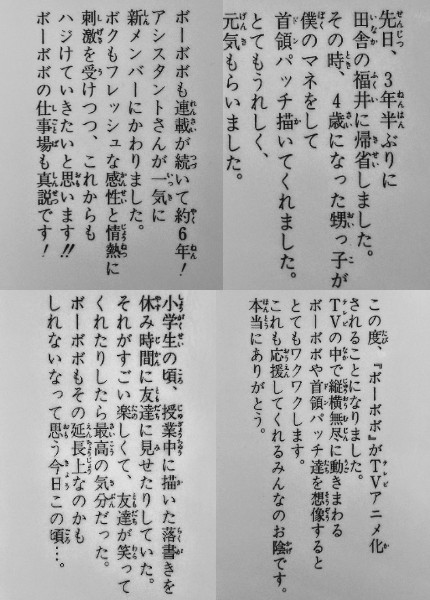 先日、3年半ぶりに
田舎の福井に帰省しました。
その時、4歳になった甥っ子が
僕のマネをして
首領パッチ描いてくれました。
とてもうれしく、
元気もらいました。
ボーボボも連載が続いて約6年!
アシスタントさんが一気に
新メンバーにかわりました。
ボクもフレッシュな感性と情熱に
刺激を受けつつ、これからも
ハジけていきたいと思います!!
ボーボボの仕事場も真説です!
この度、『ボーボボ』がTVアニメ化
されることになりました。
TVの中で縦横無尽に動きまわる
ボーボボや首領パッチ達を想像すると
とてもワクワクします。
これも応援してくれるみんなのお陰です。
本当にありがとう。
小学生の頃、授業中に描いた落書きを
休み時間に友達に見せたりしていた。
それがすごい楽しくて、友達が笑って
くれたりしたら最高の気分だった。
ボーボボもその延長上なのかも
しれないなって思う今日この頃…。